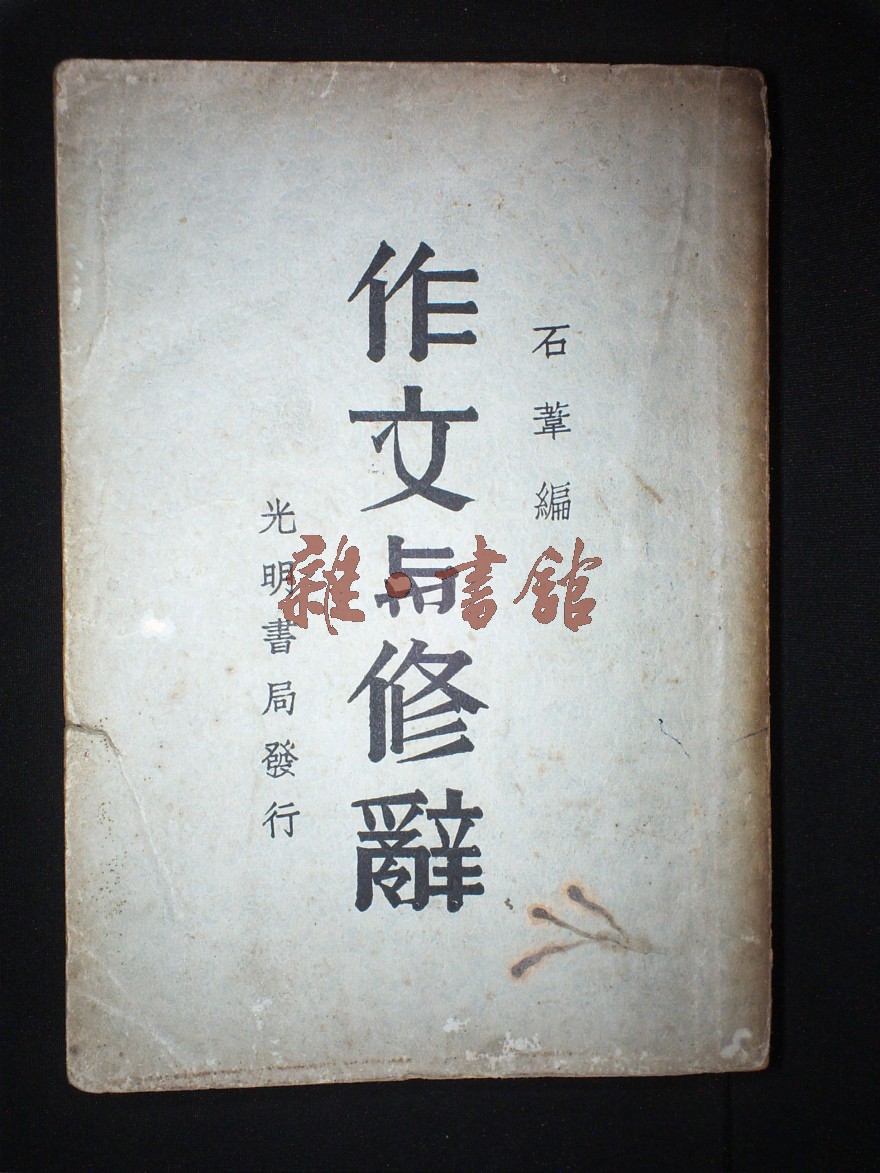 石葦編
作文与修辭
光明書局發行
雜·書館